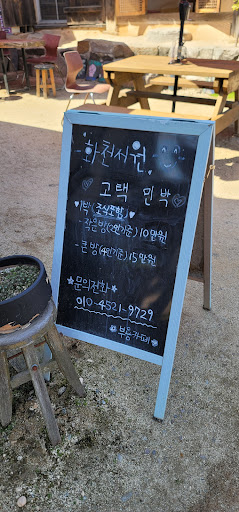 화천서원
고택 민박
1박(조식포함)
-작은방(2인기준) 10만원
-큰 방(4인기준) 15만원
*문의전화*
010-4521-9729
*부용카페*